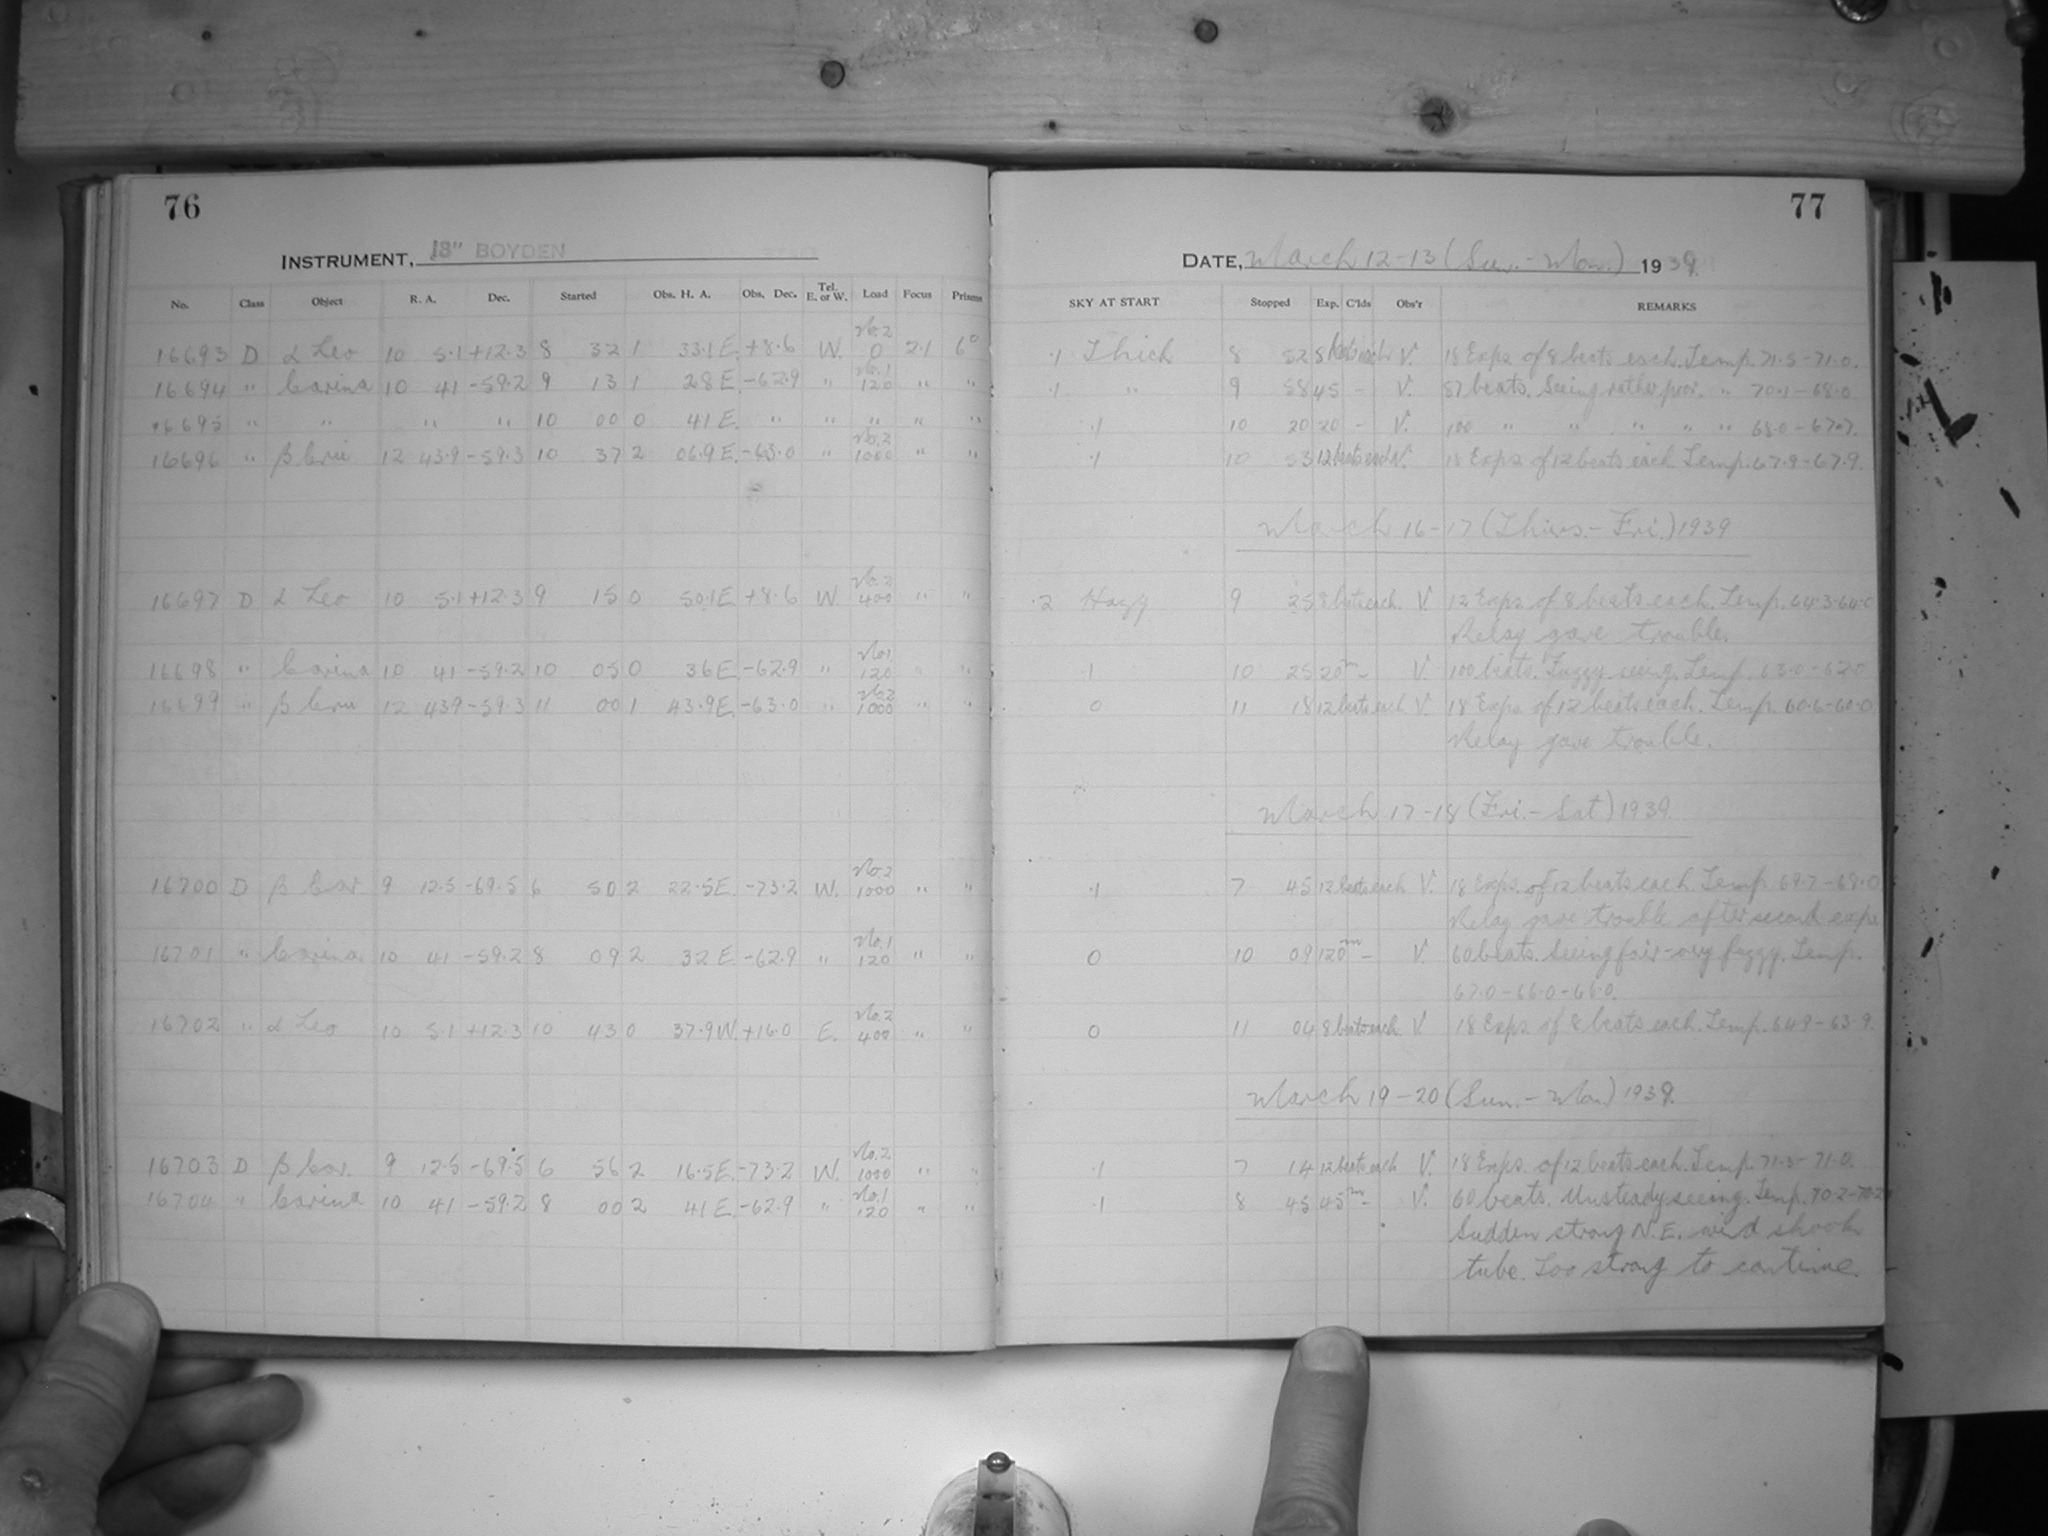 76
INSTRUMENT, 13" BOYDEN
No. Class Object R. A. Dec. Started Obs. H. A. Obs. Dec. Tel. E. or W. Load Focus Prisms
No. 2
16693 D α Leo 10 5.1 +12.3 8 32 1 33.1 E. +8.6 W. 0 2.1 6°
No. 1
16694 " Carina 10 41 -59.2 9 13 1 28 E -62.9 " 120 " "
16695 " " " " 10 00 0 41 E. " " " " "
No. 2
16696 " β Cru 12 43.9 -59.3 10 37 2 06.9 E. -63.0 " 1000 " "
No. 2
16697 D α Leo 10 5.1 +12.3 9 15 0 50.1 E +8.6 W 400 " "
No. 1
16698 " Carina 10 41 -59.2 10 05 0 36 E -62.9 " 120 " "
No. 2
16699 " β Cru 12 43.9 -59.3 11 00 1 43.9 E. -63.0 " 1000 " "
No. 2
16700 D β Car 9 12.5 -69.5 6 50 2 22.5 E. -73.2 W. 1000 " "
No. 1
16701 " Carina 10 41 -59.2 8 09 2 32 E. -62.9 " 120 " "
No. 2
16702 " α Leo 10 5.1 +12.3 10 43 0 37.9 W. +16.0 E. 400 " "
No. 2
16703 D β Car. 9 12.5 -69.5 6 56 2 16.5 E. -73.2 W. 1000 " "
No. 1
16704 " Carina 10 41 -59.2 8 00 2 41 E. -62.9 " 120 " "
77
DATE, March 12-13 (Sun. - Mon.) 1939.
SKY AT START Stopped Exp. C'lds Obs'r REMARKS
.1 Thick 8 52 8 beats each V. 18 Exps. of 8 beats each. Temp. 71.5 - 71.0.
.1 " 9 58 45 - V. 87 beats. Seeing rather poor. " 70.1 - 68.0
.1 10 20 20 - V. 100 " " " " " 68.0 - 67.7.
.1 10 53 12 beats each V. 18 Exps. of 12 beats each. Temp. 67.9 - 67.9.
March 16-17 (Thurs. - Fri.) 1939
.2 Hazy 9 25 8 beats each. V. 12 Exps. of 8 beats each. Temp. 64.3 - 64.0
Relay gave trouble.
.1 10 25 20m - V 100 beats. Fuzzy seeing. Temp. 63.0 - 62.0
0 11 18 12 beats each V. 18 Exps. of 12 beats each. Temp. 60.6 - 60.0.
Relay gave trouble.
March 17-18 (Fri. - Sat) 1939.
.1 7 45 12 beats each V. 18 Exps. of 12 beats each. Temp. 69.7 - 69.0
Relay gave trouble after second exp.
0 10 09 120m - V. 60 beats. Seeing fair - fuzzy. Temp.
67.0 - 66.0 - 66.0.
0 11 04 8 beats each V 18 Exps. of 8 beats each. Temp. 64.9 - 63.9.
March 19-20 (Sun. - Mon.) 1939.
.1 7 14 12 beats each V. 18 Exps. of 12 beats each. Temp. 71.3 - 71.0.
.1 8 45 45m - V. 60 beats. Unsteady seeing. Temp. 70.2 - 70.2
Sudden strong N.E. wind shook
tube. Too strong to continue.